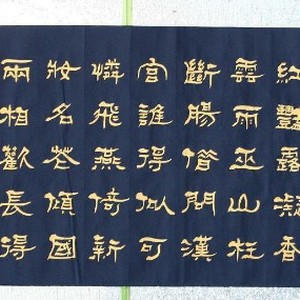 紅豔露凝香
雲雨巫山枉
斷腸借問漢
宮誰得似可
憐飛燕倚新
妝名花傾國
兩相歡長得